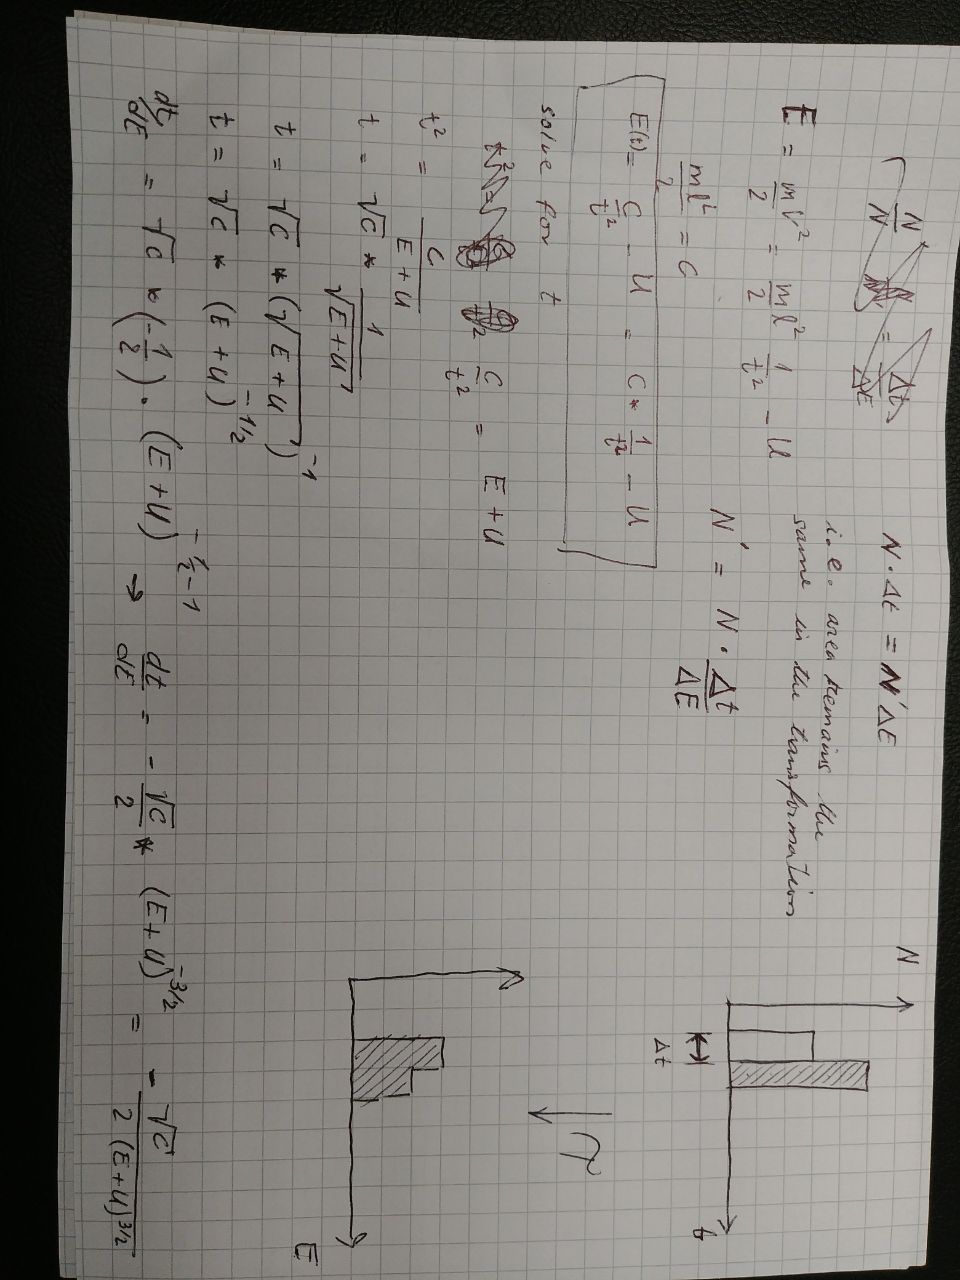 N · Δt = N' ΔE
i.e. area remains the
same in the transformation
E = mv²/2 = ml²/2 1/t² - U
ml²/2 = C
N' = N · Δt/ΔE
E(t) = C/t² - U = C * 1/t² - U
solve for t
C/t² = E + U
t² = C/(E + U)
t = √C * 1/√(E + U)
t = √C * (√(E + U))⁻¹
t = √C * (E + U)^(-1/2)
dt/dE = √C * (-1/2) · (E + U)^(-1/2 - 1) → dt/dE = - √C/2 * (E + U)^(-3/2) = - √C/(2 (E + U)^(3/2))
N
Δt
t
E